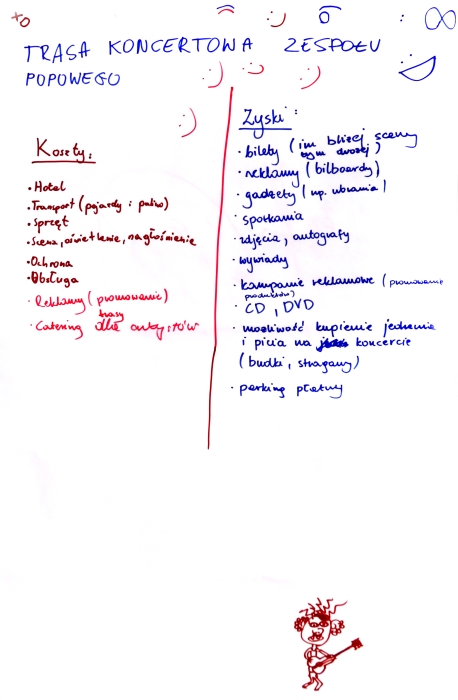 TRASA KONCERTOWA ZESPOŁU
POPOWEGO
Koszty:
• Hotel
• Transport (pojazdy i paliwo)
• Sprzęt
• Scena, oświetlenie, nagłośnienie
• Ochrona
• Obsługa
• Reklamy (promowanie)
trasy
• Catering dla artystów
Zyski:
• bilety (im bliżej sceny
tym drożej)
• reklamy (bilboardy)
• gadżety (np. ubrania)
• spotkania
• zdjęcia, autografy
• wywiady
• kampanie reklamowe (promowanie
produktów)
• CD, DVD
• możliwość kupienie jedzenia
i picia na koncercie
(budki, stragany)
• parking płatny